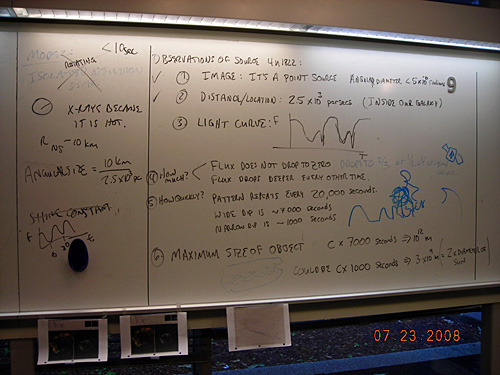 MODEL:
<10sec
ROTATING
X-RAYS BECAUSE
IT IS HOT.
R NS ~ 10 km
ANGULAR SIZE = 10 km
2.5×10³ pc
SHINE CONSTANT
F
OBSERVATIONS OF SOURCE 4U1822:
✓ ① IMAGE: IT'S A POINT SOURCE ANGULAR DIAMETER < 5×10
9
✓ ② DISTANCE/LOCATION: 2.5×10³ parsecs (INSIDE OUR GALAXY)
③ LIGHT CURVE: F
T
④ HOW MUCH? < FLUX DOES NOT DROP TO ZERO
FLUX DROPS DEEPER EVERY OTHER TIME.
⑤ HOW QUICKLY? PATTERN REPEATS EVERY 20,000 SECONDS.
WIDE DIP IS ~7000 SECONDS
NARROW DIP IS ~1000 SECONDS
⑥ MAXIMUM SIZE OF OBJECT C × 7000 SECONDS ⇒ 10¹² m
COULD BE C×1000 SECONDS ⇒ 3×10 m (= 2× DIAMETER OF
SUN
07 23 2008